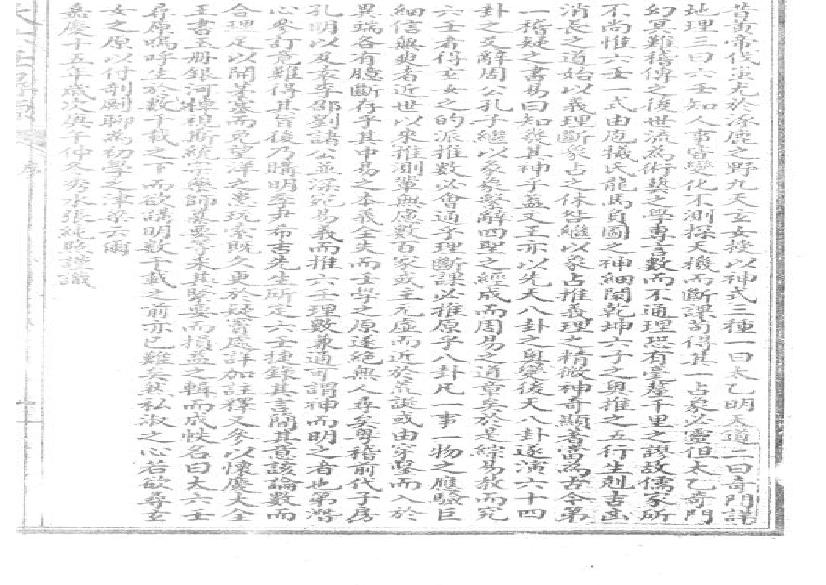 昔黃帝伐蚩尤於涿鹿之野九天玄女授以神式三種一曰太乙明天道二曰奇門詳
地理三曰六壬知人事皆變化不測探天機而斷課苟得其一占象必靈但太乙奇門
幻冥難稽傳之後世流為術藝之學專言數而不通理恐有毫釐千里之誤故儒家所
不尚惟六壬一式由庖犧氏龍馬負圖之神細闡乾坤六子之奧推之五行生剋吉凶
消長之道始以義理斷象占之休咎繼以象占推義理之精微神奇顯著當為古今第
一稽疑之書易曰知幾其神乎蓋文王亦以先天八卦之奧變後天八卦遂演六十四
卦之爻辭周公孔子繼以彖象繫辭四聖之經成而周易之道章矣於是綜易教而究
六壬者得玄女之的派推數必會通乎理斷課必推原乎八卦凡一事一物之應驗巨
細信無爽者近世以來推測輩無慮數百家或主元虛而近於荒誕或由穿鑿而入於
異端各有臆斷存乎其中易之本義全失而壬學之原遂絕無人尋矣粵稽前代子房
孔明以及袁李邵劉諸公並深究易義而推六壬理數兼通可謂神而明之者也第潛
心參訂竟難得其旨後乃購明李尹希吉先生所定六壬捷錄其言簡其意該論數而
合理足以開茅塞而免望洋之歎玩索既久更於疑竇處詳加註釋又參以懷慶大全
玉書玉冊銀河棹現斯統宗畢師
尋原嗚呼生於數千載之下而欲講明數千載之前亦已難矣然私淑之心若欲尋玄
女之原以付剞劂聊為初學之津梁云爾
嘉慶十五年歲次庚午仲冬秀水張純照謹識
序